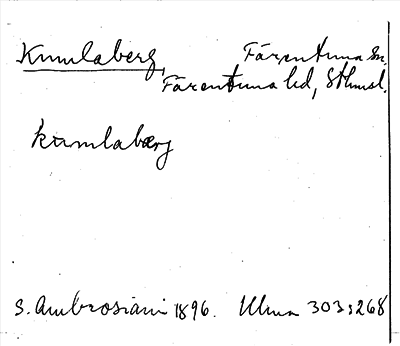 Kumlaberg, Färentuna sn.
Färentuna hd, Sthmsl.
kumlabærg
S. Ambrosiani 1896. Ulma 303:268